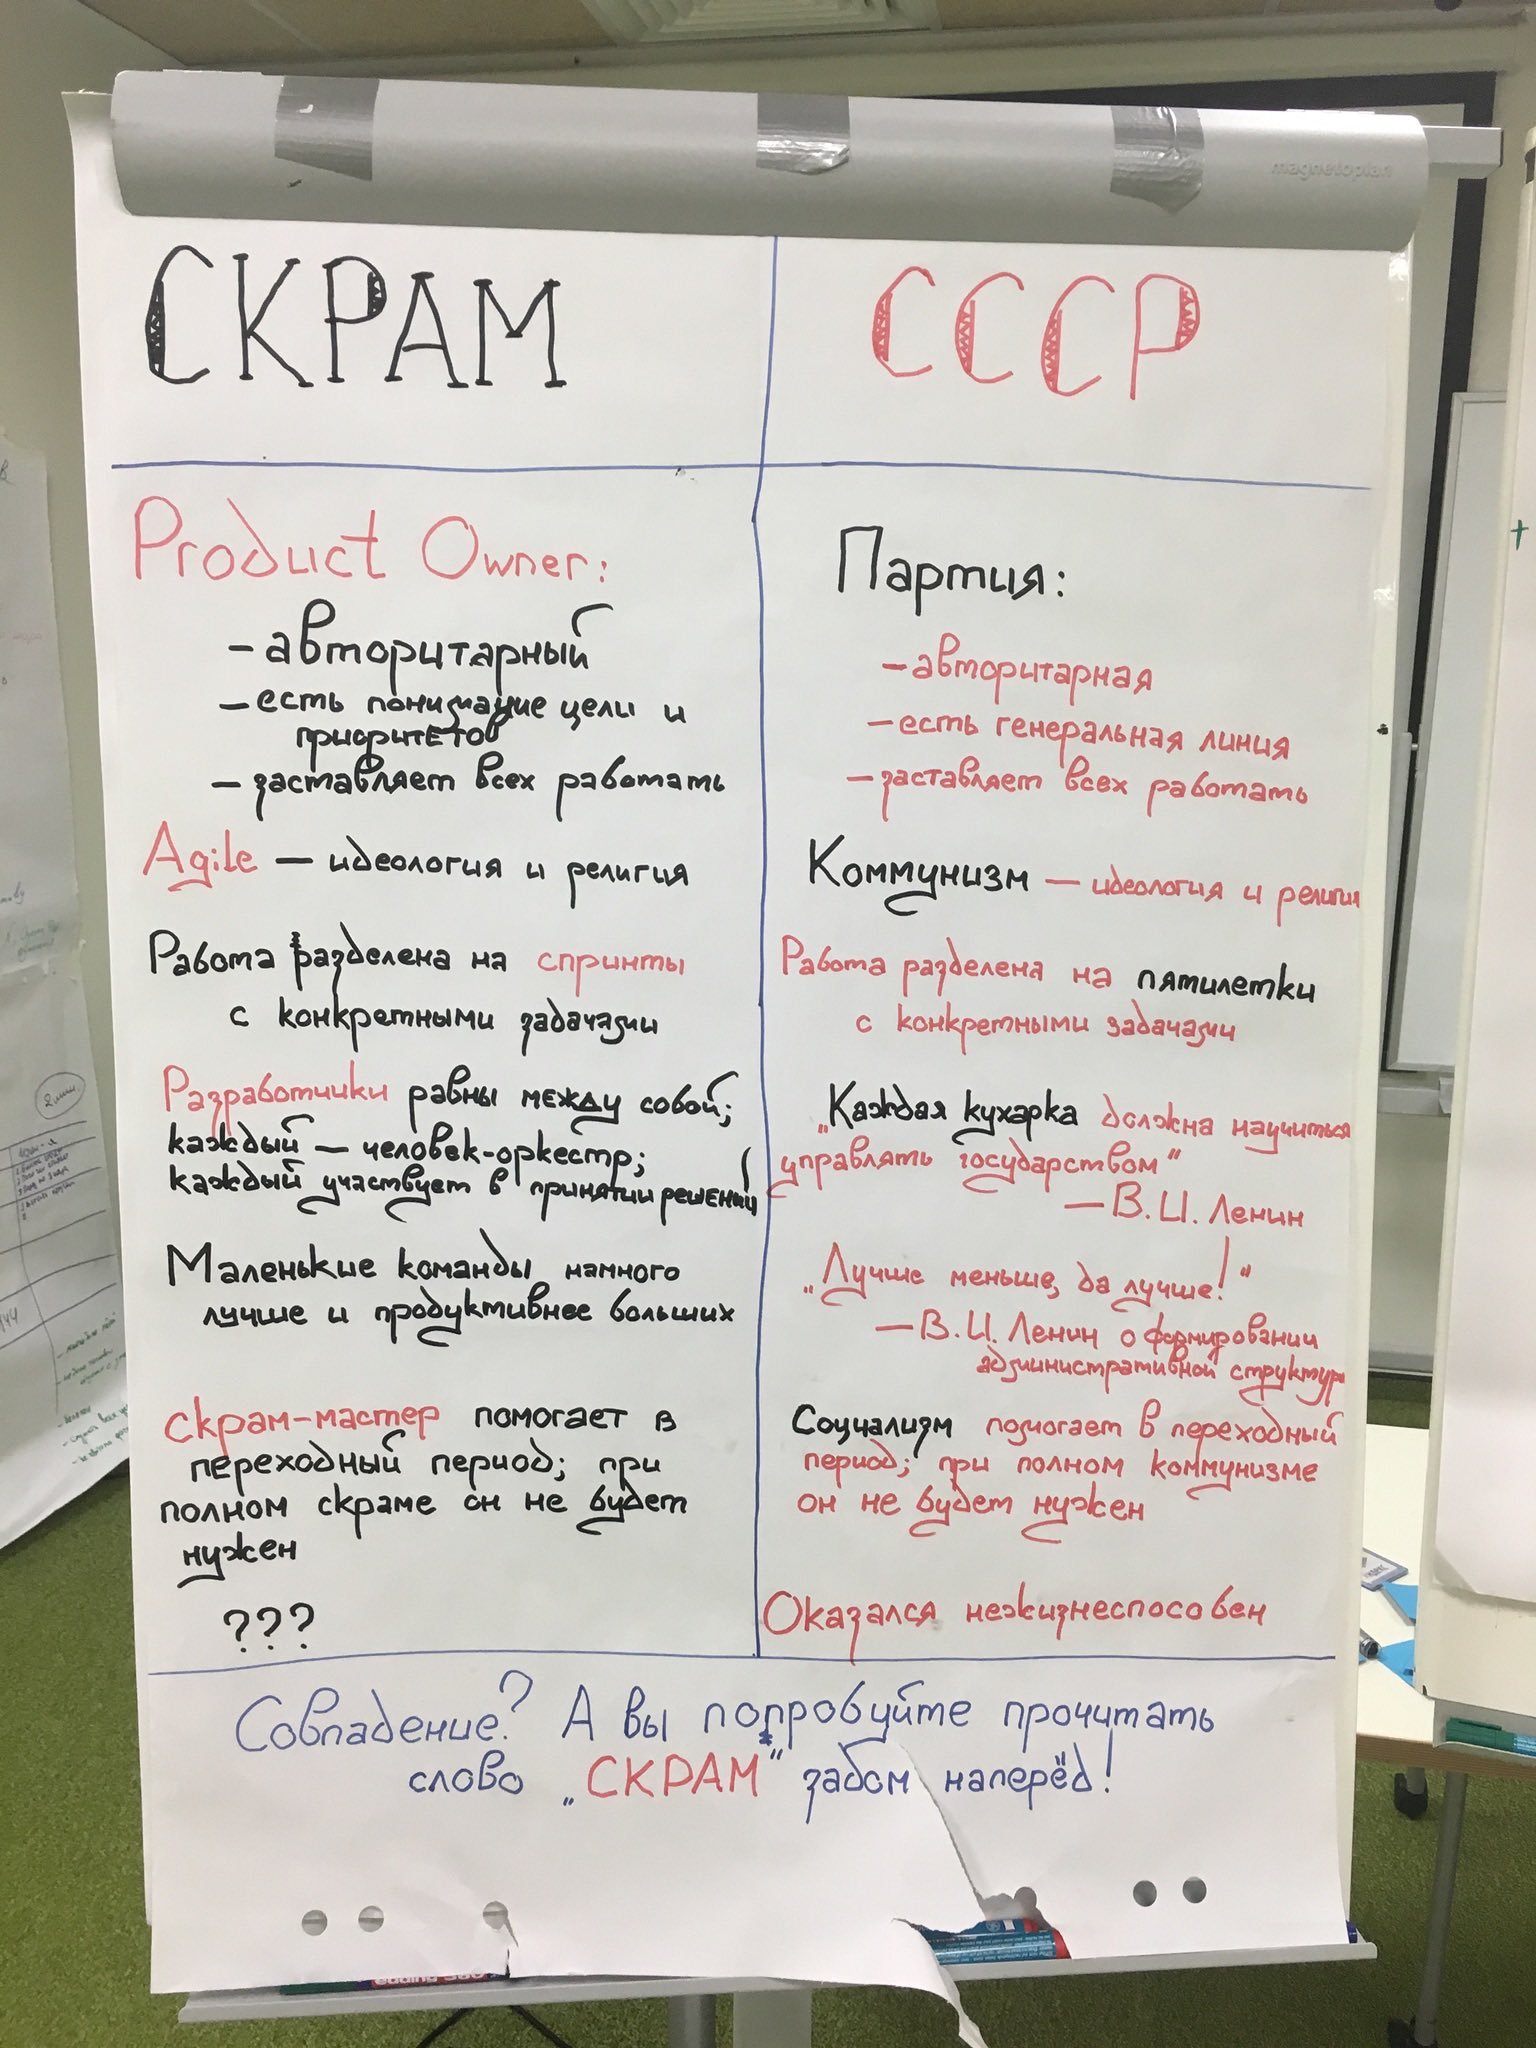 magnetoplan
СКРАМ
Product Owner:
– авторитарный
– есть понимание цели и
приоритетов
– заставляет всех работать
Agile – идеология и религия
Работа разделена на спринты
с конкретными задачами
Разработчики равны между собой;
каждый – человек-оркестр;
каждый участвует в принятии решений
Маленькие команды намного
лучше и продуктивнее больших
скрам-мастер помогает в
переходный период; при
полном скраме он не будет
нужен
???
СССР
Партия:
– авторитарная
– есть генеральная линия
– заставляет всех работать
Коммунизм – идеология и религия
Работа разделена на пятилетки
с конкретными задачами
„Каждая кухарка должна научиться
управлять государством“
– В. И. Ленин
„Лучше меньше, да лучше!“
– В. И. Ленин о формировании
административной структуры
Социализм помогает в переходный
период; при полном коммунизме
он не будет нужен
Оказался нежизнеспособен
Совпадение? А вы попробуйте прочитать
слово „СКРАМ“ задом наперёд!
edding
2 мин.